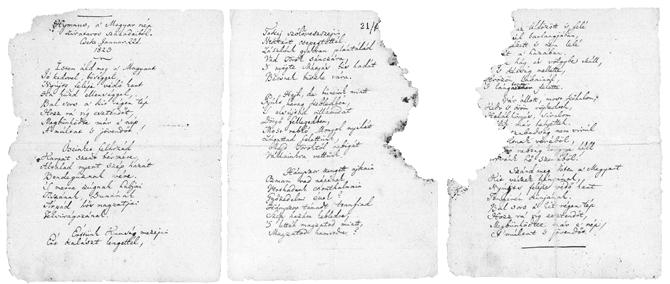 Hymnus, a' Magyar nép
zivataros századaiból.
Cseke, Januar. 22d.
1823
Isten áldd meg a' Magyart
Jó kedvvel, bőséggel,
Nyújts feléje védő kart
Ha küzd ellenséggel;
Bal sors a' kit régen tép
Hozz rá víg esztendőt,
Megbűnhődte már a' nép
A' multat 's jövendőt!
Őseinket felhozád
Kárpát szent bérczére,
Általad nyert szép hazát
Bendegúznak vére.
'S merre zúgnak habjai
Tiszának, Dunának,
Árpád hős magzatjai
Felvirágzának.
Értünk Kunság mezein
Ért kalászt lengettél,
21/
Tokaj szőlővesszein
Nektárt csepegtettél.
Zászlónk gyakran plántálád
Vad Török sánczára,
'S nyögte Mátyás bús hadát
Bécsnek büszke vára.
Hajh, de bűneink miatt
Gyúlt harag kebledben,
'S elsújtád villámidat
Dörgő fellegedben,
Most rabló Mongol nyilát
Zúgattad felettünk,
Majd Töröktől rabigát
Vállainkra vettünk.
Hányszor zengett ajkain
Ozman vad népének
Vert hadunk csonthalmain
Győzedelmi ének!
Hányszor támadt tenfiad
Szép hazám kebledre,
'S lettél magzatod miatt
Magzatod hamvvedre?
üldözött 's felé
barlangjában,
nem lelé
a' hazában.
hág és völgybe száll,
kétség mellette,
lángtenger felette.
Vár állott, most kőhalom,
Kedv 's öröm röpkedtek,
Halálhörgés, siralom
már helyettek.
szabadság nem virúl
véréből,
rabság könnye hull
hő szeméből.
Szánd meg Isten a' Magyart
Kit vészek hányának,
Nyújts feléje védő kart
Tengerén kínjának.
Bal sors a' kit régen tép
Hozz rá víg esztendőt,
Megbűnhődte már a' nép
A' multat 's jövendőt!